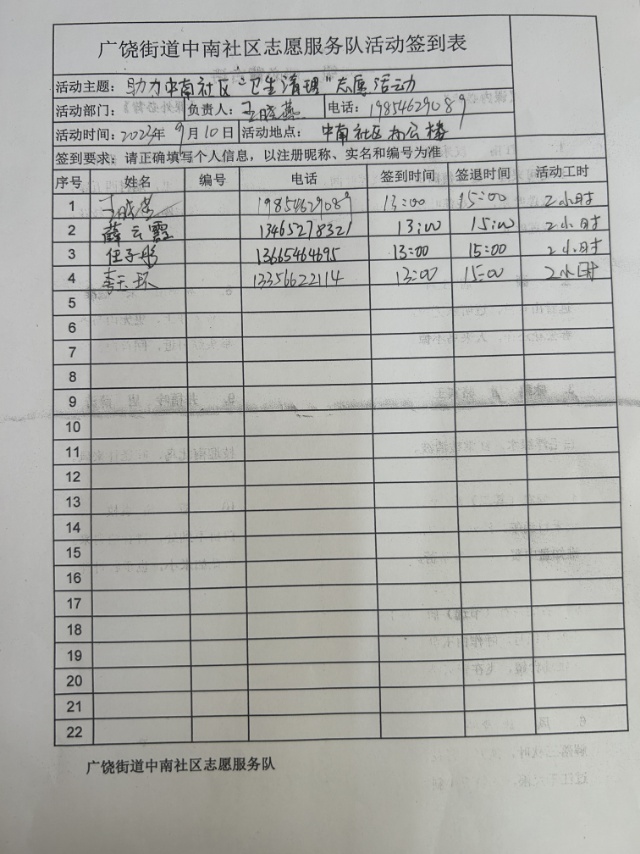 广饶街道中南社区志愿服务队活动签到表
活动主题： 助力中南社区“卫生清理”志愿活动
活动部门： 负责人：王晓燕 电话：19854629089
活动时间：2023年9月10日 活动地点： 中南社区办公楼
签到要求：请正确填写个人信息，以注册昵称、实名和编号为准
序号 姓名 编号 电话 签到时间 签退时间 活动工时
1 王晓燕 19854629089 13:00 15:00 2小时
2 薛云霞 13465278321 13:00 15:00 2小时
3 任子彤 13665464695 13:00 15:00 2小时
4 13356622114 13:00 15:00 2小时
5
6
7
8
9
10
11
12
13
14
15
16
17
18
19
20
21
22
广饶街道中南社区志愿服务队